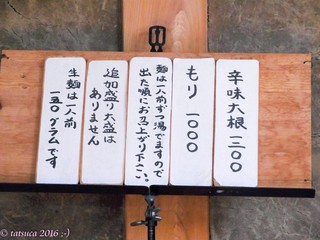 辛味大根 一三〇〇
もり 一〇〇〇
麵は一人前ずつ湯でますので
出た順にお召上がり下さい。
追加盛り大盛は
ありません
生麵は一人前
一五〇グラムです
© tatsuca 2016 ;-)